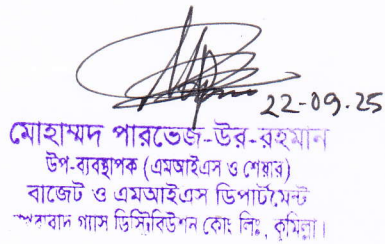 22-09-25
মোহাম্মদ পারভেজ-উর-রহমান
উপ-ব্যবস্থাপক (এমআইএস ও শেয়ার)
বাজেট ও এমআইএস ডিপার্টমেন্ট
গ্যাস ডিস্ট্রিবিউশন কোং লিঃ, কুমিল্লা।